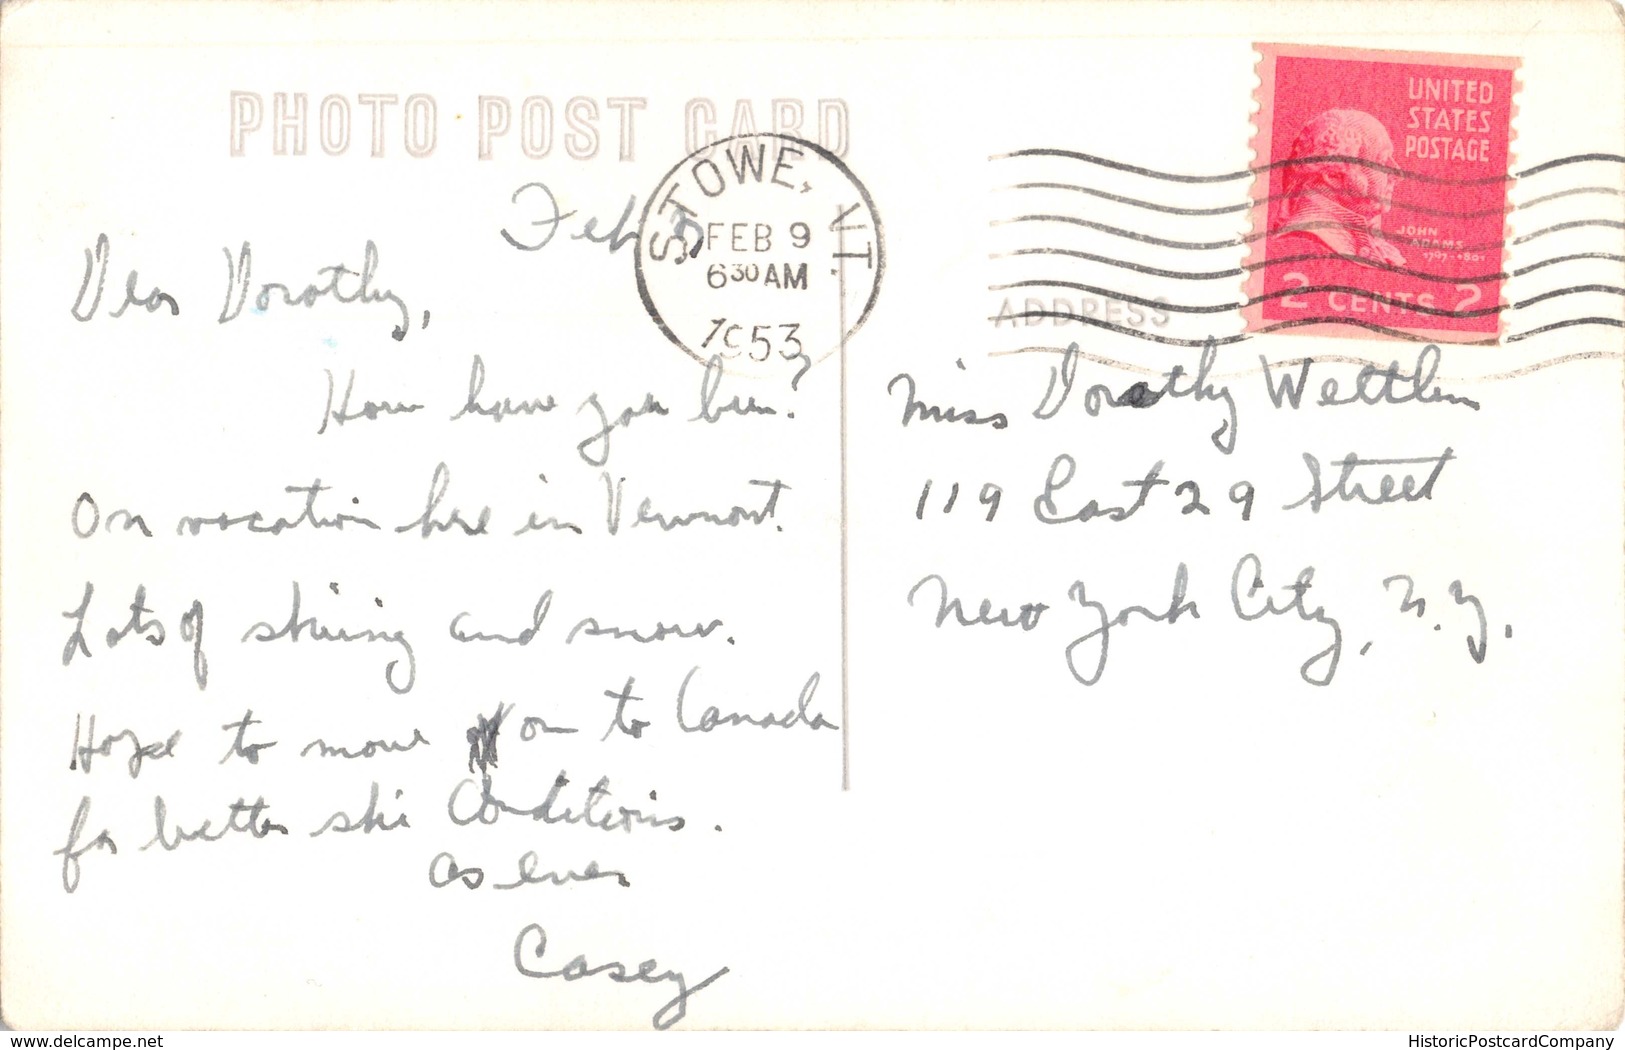 PHOTO POST CARD
STOWE, VT.
FEB 9
6 30 AM
1953
UNITED
STATES
POSTAGE
JOHN
ADAMS
1797-1801
2 CENTS 2
ADDRESS
Feb
Dear Dorothy,
How have you been?
On vacation here in Vermont.
Lots of skiing and snow.
Hope to move on to Canada
for better ski Conditions.
as ever
Casey
Miss Dorothy
119 East 29 Street
New York City, N.Y.
HistoricPostcardCompany